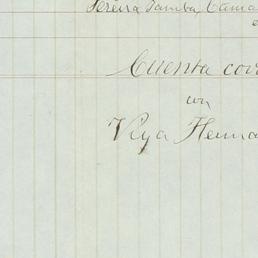 Pereira Gamba, Cama
Cuenta cor
con
Vega Herma